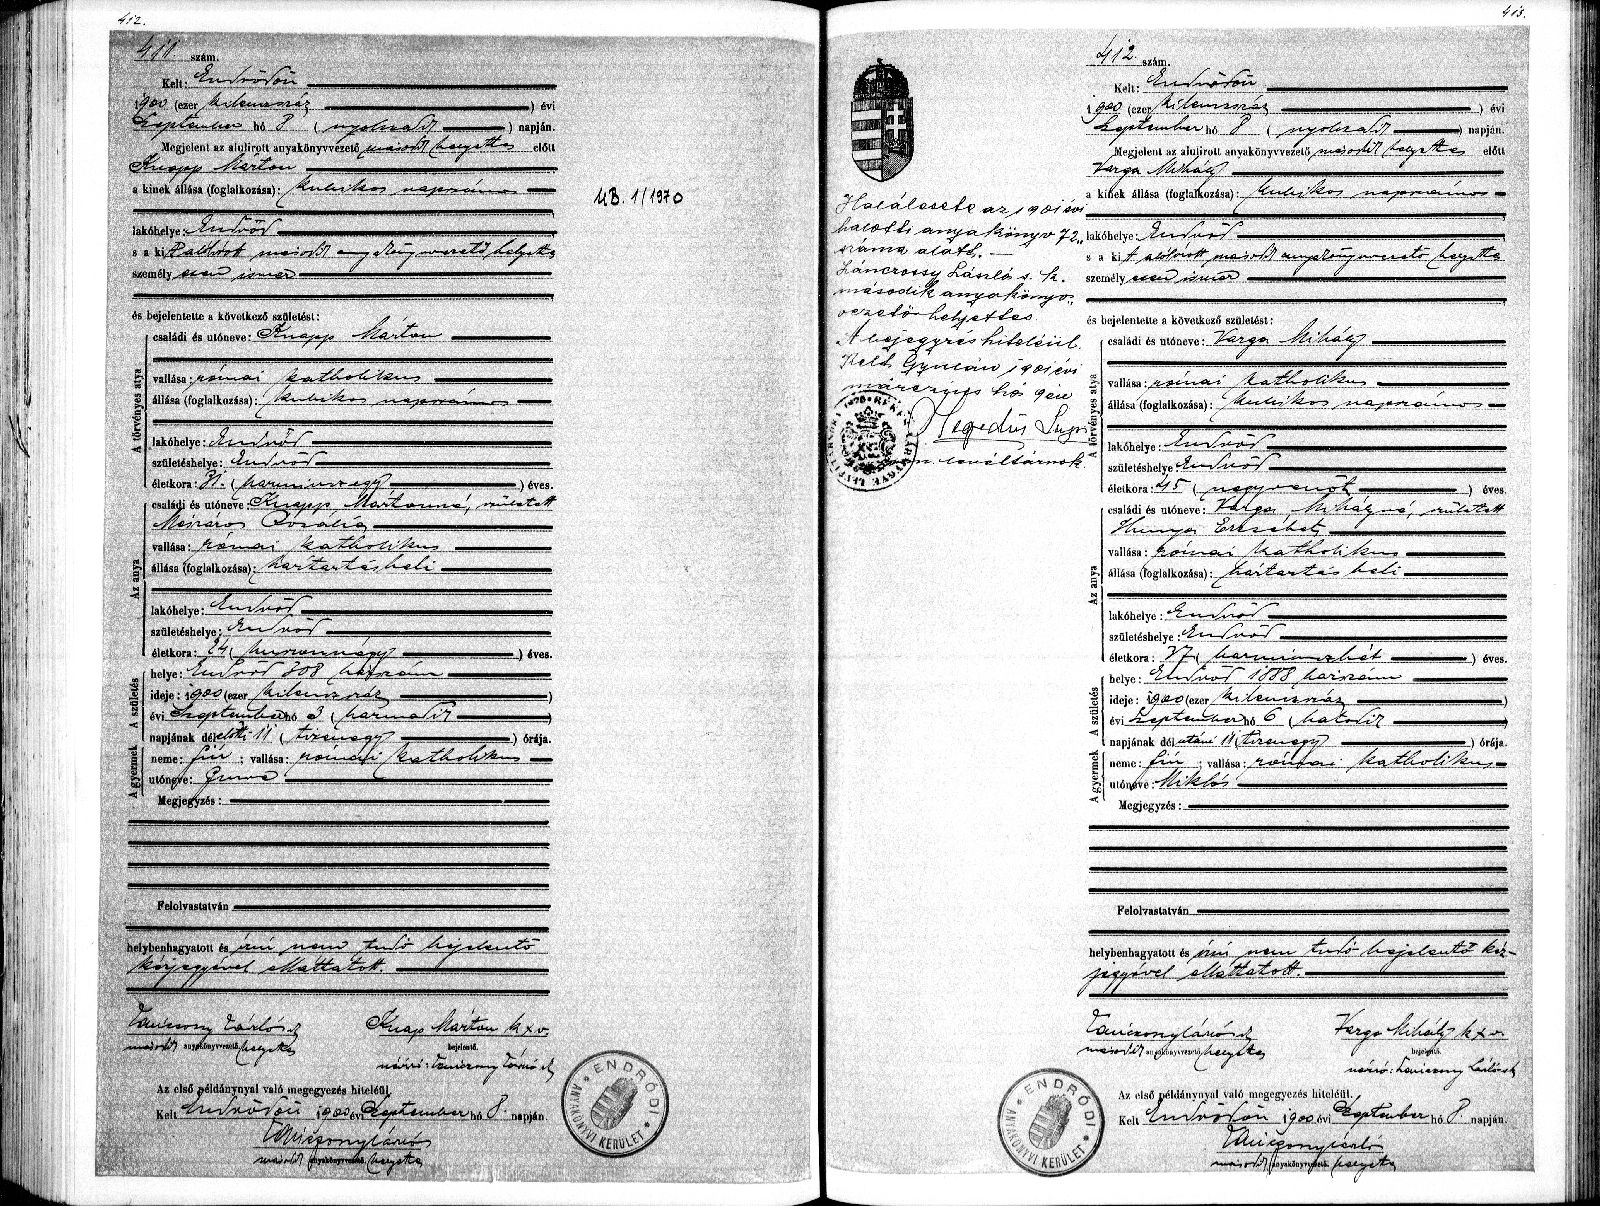 412.
411 szám.
Kelt: Endrődön
1900 (ezer kilenczszáz) évi
Szeptember hó 8 (nyolczadik) napján.
Megjelent az alulirott anyakönyvvezető második helyettes előtt
Knapp Márton
a kinek állása (foglalkozása): kubikos napszámos
lakóhelye: Endrőd
s a kit alulirott második anyakönyvvezető helyettes
személyesen ismer
és bejelentette a következő születést:
A törvényes atya
családi és utóneve: Knapp Márton
vallása: római katholikus
állása (foglalkozása): kubikos napszámos
lakóhelye: Endrőd
születéshelye: Endrőd
életkora: 31. (harminczegy) éves.
Az anya
családi és utóneve: Knapp Mártonné, született
Mészáros Rozália
vallása: római katholikus
állása (foglalkozása): háztartásbeli
lakóhelye: Endrőd
születéshelye: Endrőd
életkora: 24 (huszonnégy) éves.
A születés
helye: Endrőd 708 házszám
ideje: 1900 (ezer kilenczszáz)
évi Szeptember hó 3 (harmadik)
napjának délelőtti 11 (tizenegy) órája.
A gyermek
neme: fiú; vallása: római katholikus
utóneve:
Megjegyzés:
Felolvastatván
helybenhagyatott és írni nem tudó bejelentő
kézjegyével elláttatott.
második anyakönyvvezető helyettes
Knap Márton k x v.
bejelentő.
Az első példánynyal való megegyezés hiteléül.
Kelt Endrődön 1900 évi Szeptember hó 8. napján.
második anyakönyvvezető helyettes
ENDRŐDI ANYAKÖNYVI KERÜLET
MB. 1/1970
413.
Halálesete az 1901 évi
halotti anyakönyv 72.
száma alatt.
László s. k.
második anyakönyv
vezető helyettes
A bejegyzés hiteléül.
Kelt Gyulán 1901 évi
márczius hó 9én
Hegedüs
412. szám.
Kelt: Endrődön
1900 (ezer kilenczszáz) évi
Szeptember hó 8 (nyolczadik) napján.
Megjelent az alulirott anyakönyvvezető második helyettes előtt
Varga Mihály
a kinek állása (foglalkozása): kubikos napszámos
lakóhelye: Endrőd
s a kit alulirott második anyakönyvvezető helyettes
személyesen ismer
és bejelentette a következő születést:
A törvényes atya
családi és utóneve: Varga Mihály
vallása: római katholikus
állása (foglalkozása): kubikos napszámos
lakóhelye: Endrőd
születéshelye Endrőd
életkora: 45 (negyvenöt) éves.
Az anya
családi és utóneve: Varga Mihályné, született
Hunya Erzsébet
vallása: római katholikus
állása (foglalkozása): háztartásbeli
lakóhelye: Endrőd
születéshelye: Endrőd
életkora: 37 (harminczhét) éves.
A születés
helye: Endrőd 1888 házszám
ideje: 1900 (ezer kilenczszáz)
évi Szeptember hó 6 (hatodik)
napjának délutáni 11 (tizenegy) órája.
A gyermek
neme: fiú; vallása: római katholikus
utóneve: Miklós
Megjegyzés:
Felolvastatván
helybenhagyatott és írni nem tudó bejelentő kéz-
jegyével elláttatott.
második anyakönyvvezető helyettes
Varga Mihály k x v.
bejelentő.
Az első példánynyal való megegyezés hiteléül.
Kelt Endrődön 1900 évi Szeptember hó 8. napján.
második anyakönyvvezető helyettes
ENDRŐDI ANYAKÖNYVI KERÜLET